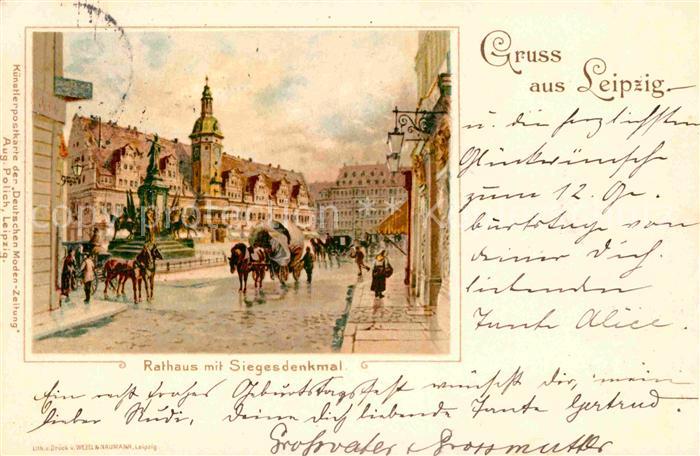 Gruss
aus Leipzig
u. die herzlichsten
Glückwünsche
zum 12. Ge-
burtstage von
deiner Dich
liebenden
Tante Alice.
Künstlerpostkarte der „Deutschen Moden-Zeitung"
Aug. Polich, Leipzig.
Rathaus mit Siegesdenkmal.
Ein recht frohes Geburtstagsfest wünscht dir, mein
lieber Rudi, Deine Dich liebende Tante Gertrud.
Grossvater Grossmutter
Lith. u. Druck v. WEZEL & NAUMANN, Leipzig.